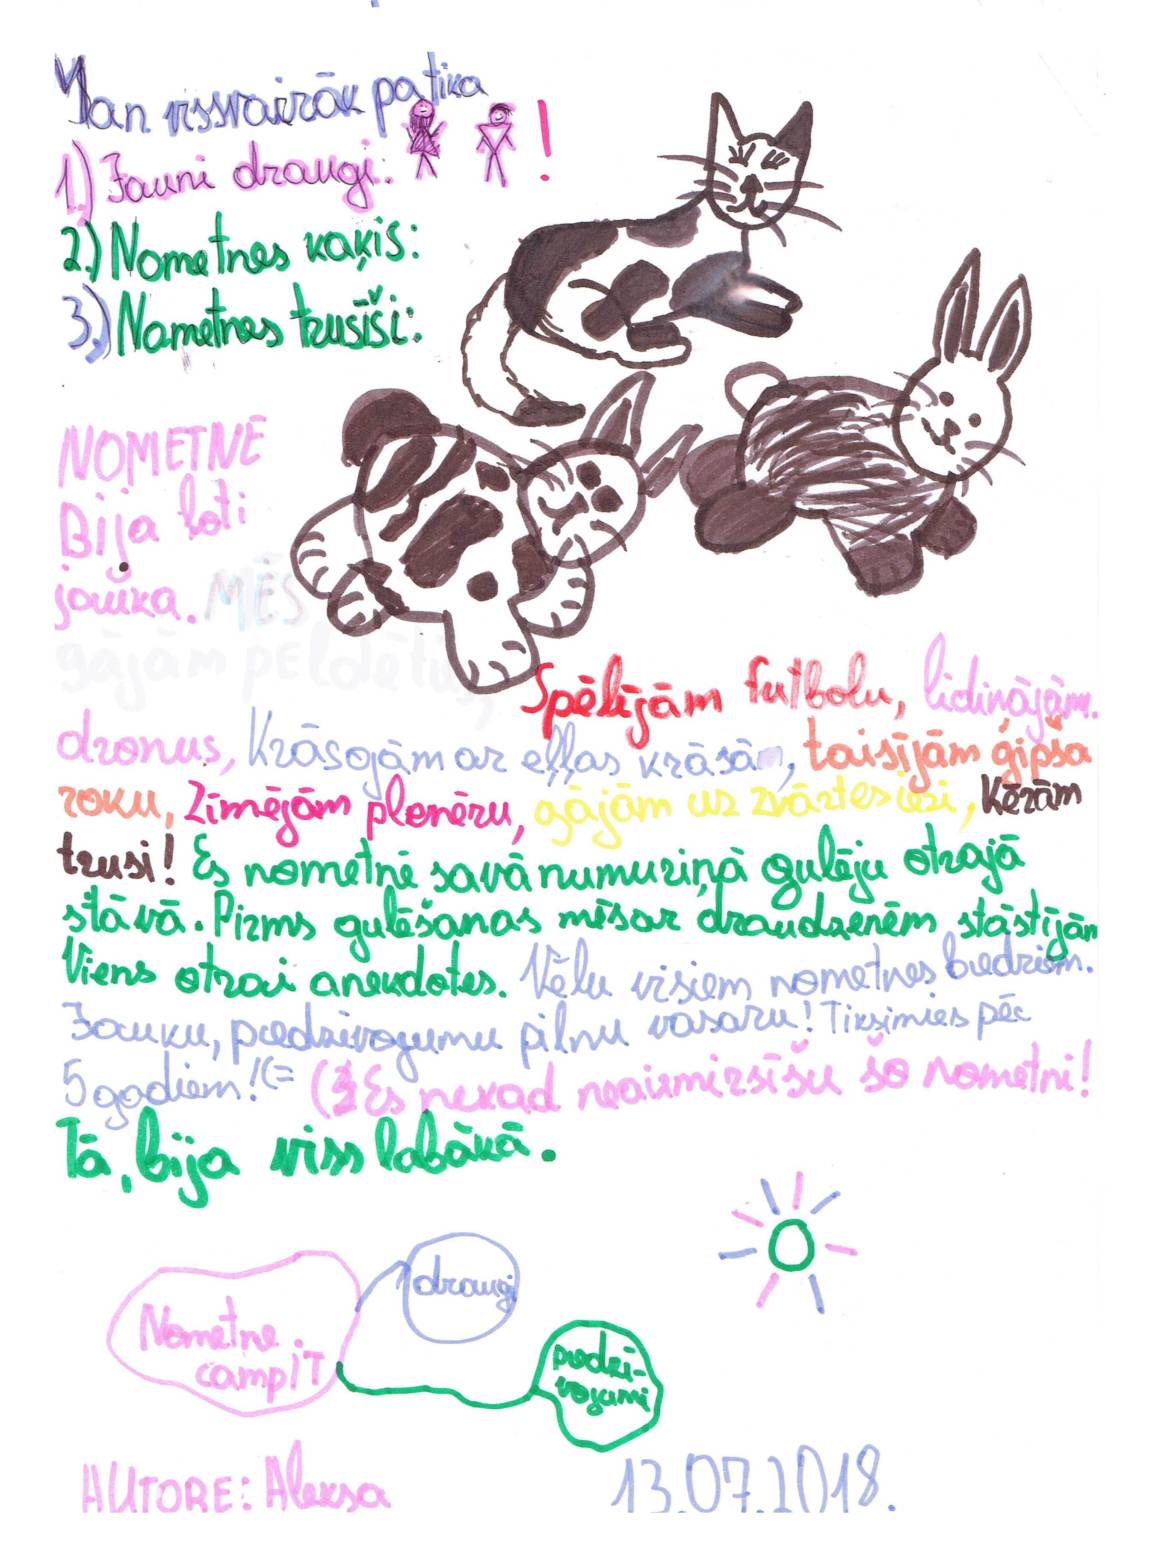 Man vissvairāk patika
1.) Jauni draugi: !
2.) Nometnes kaķis:
3.) Nometnes trusīši:
NOMETNĒ
Bija ļoti
jauka. MĒS
gājām pEldētu,
Spēlējām futbolu, lidinājām
dronus, Krāsojām ar eļļas krāsām, taisījām ģipša
roku, Zīmējām plenēru, gājām uz zvārtes iezi, Ķērām
trusi! Es nometnē savā numuriņā gulēju otrajā
stāvā. Pirms gulēšanas mēs ar draudzenēm stāstījām
Viens otrai anekdotes. Vēlu visiem nometnes biedriem
Jauku, piedzīvojumu pilnu vasaru! Tiksimies pēc
5 godiem! (= (Es nekad neaizmirsīšu šo nometni!
Tā, bija viss labākā.
draugi
Nometne
campiT
piedzī-
vojumi
AUTORE: Aleksa
13.07.2018.